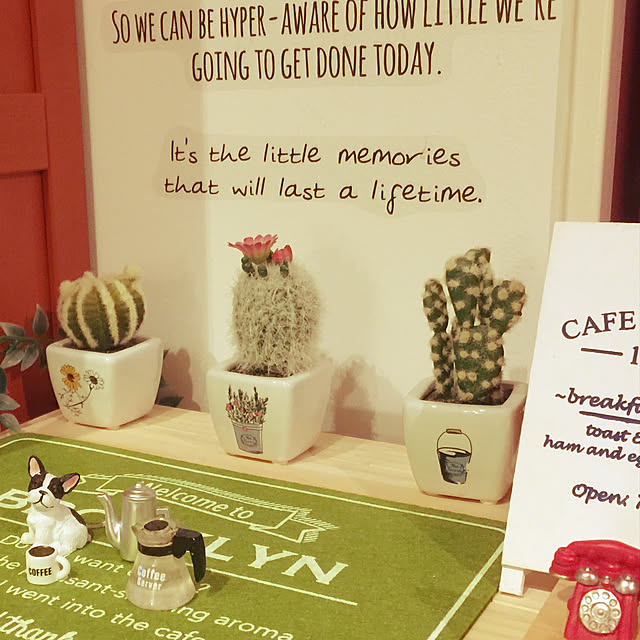 SO WE CAN BE HYPER-AWARE OF HOW LITTLE WE'RE
GOING TO GET DONE TODAY.
It's the little memories
that will last a lifetime.
CAFE
~breakf
toast
ham and e
Open:
Welcome to
BRO LYN
want
sant-s ing aroma
I went into the cafe
thank
COFFEE
Coffee
Server